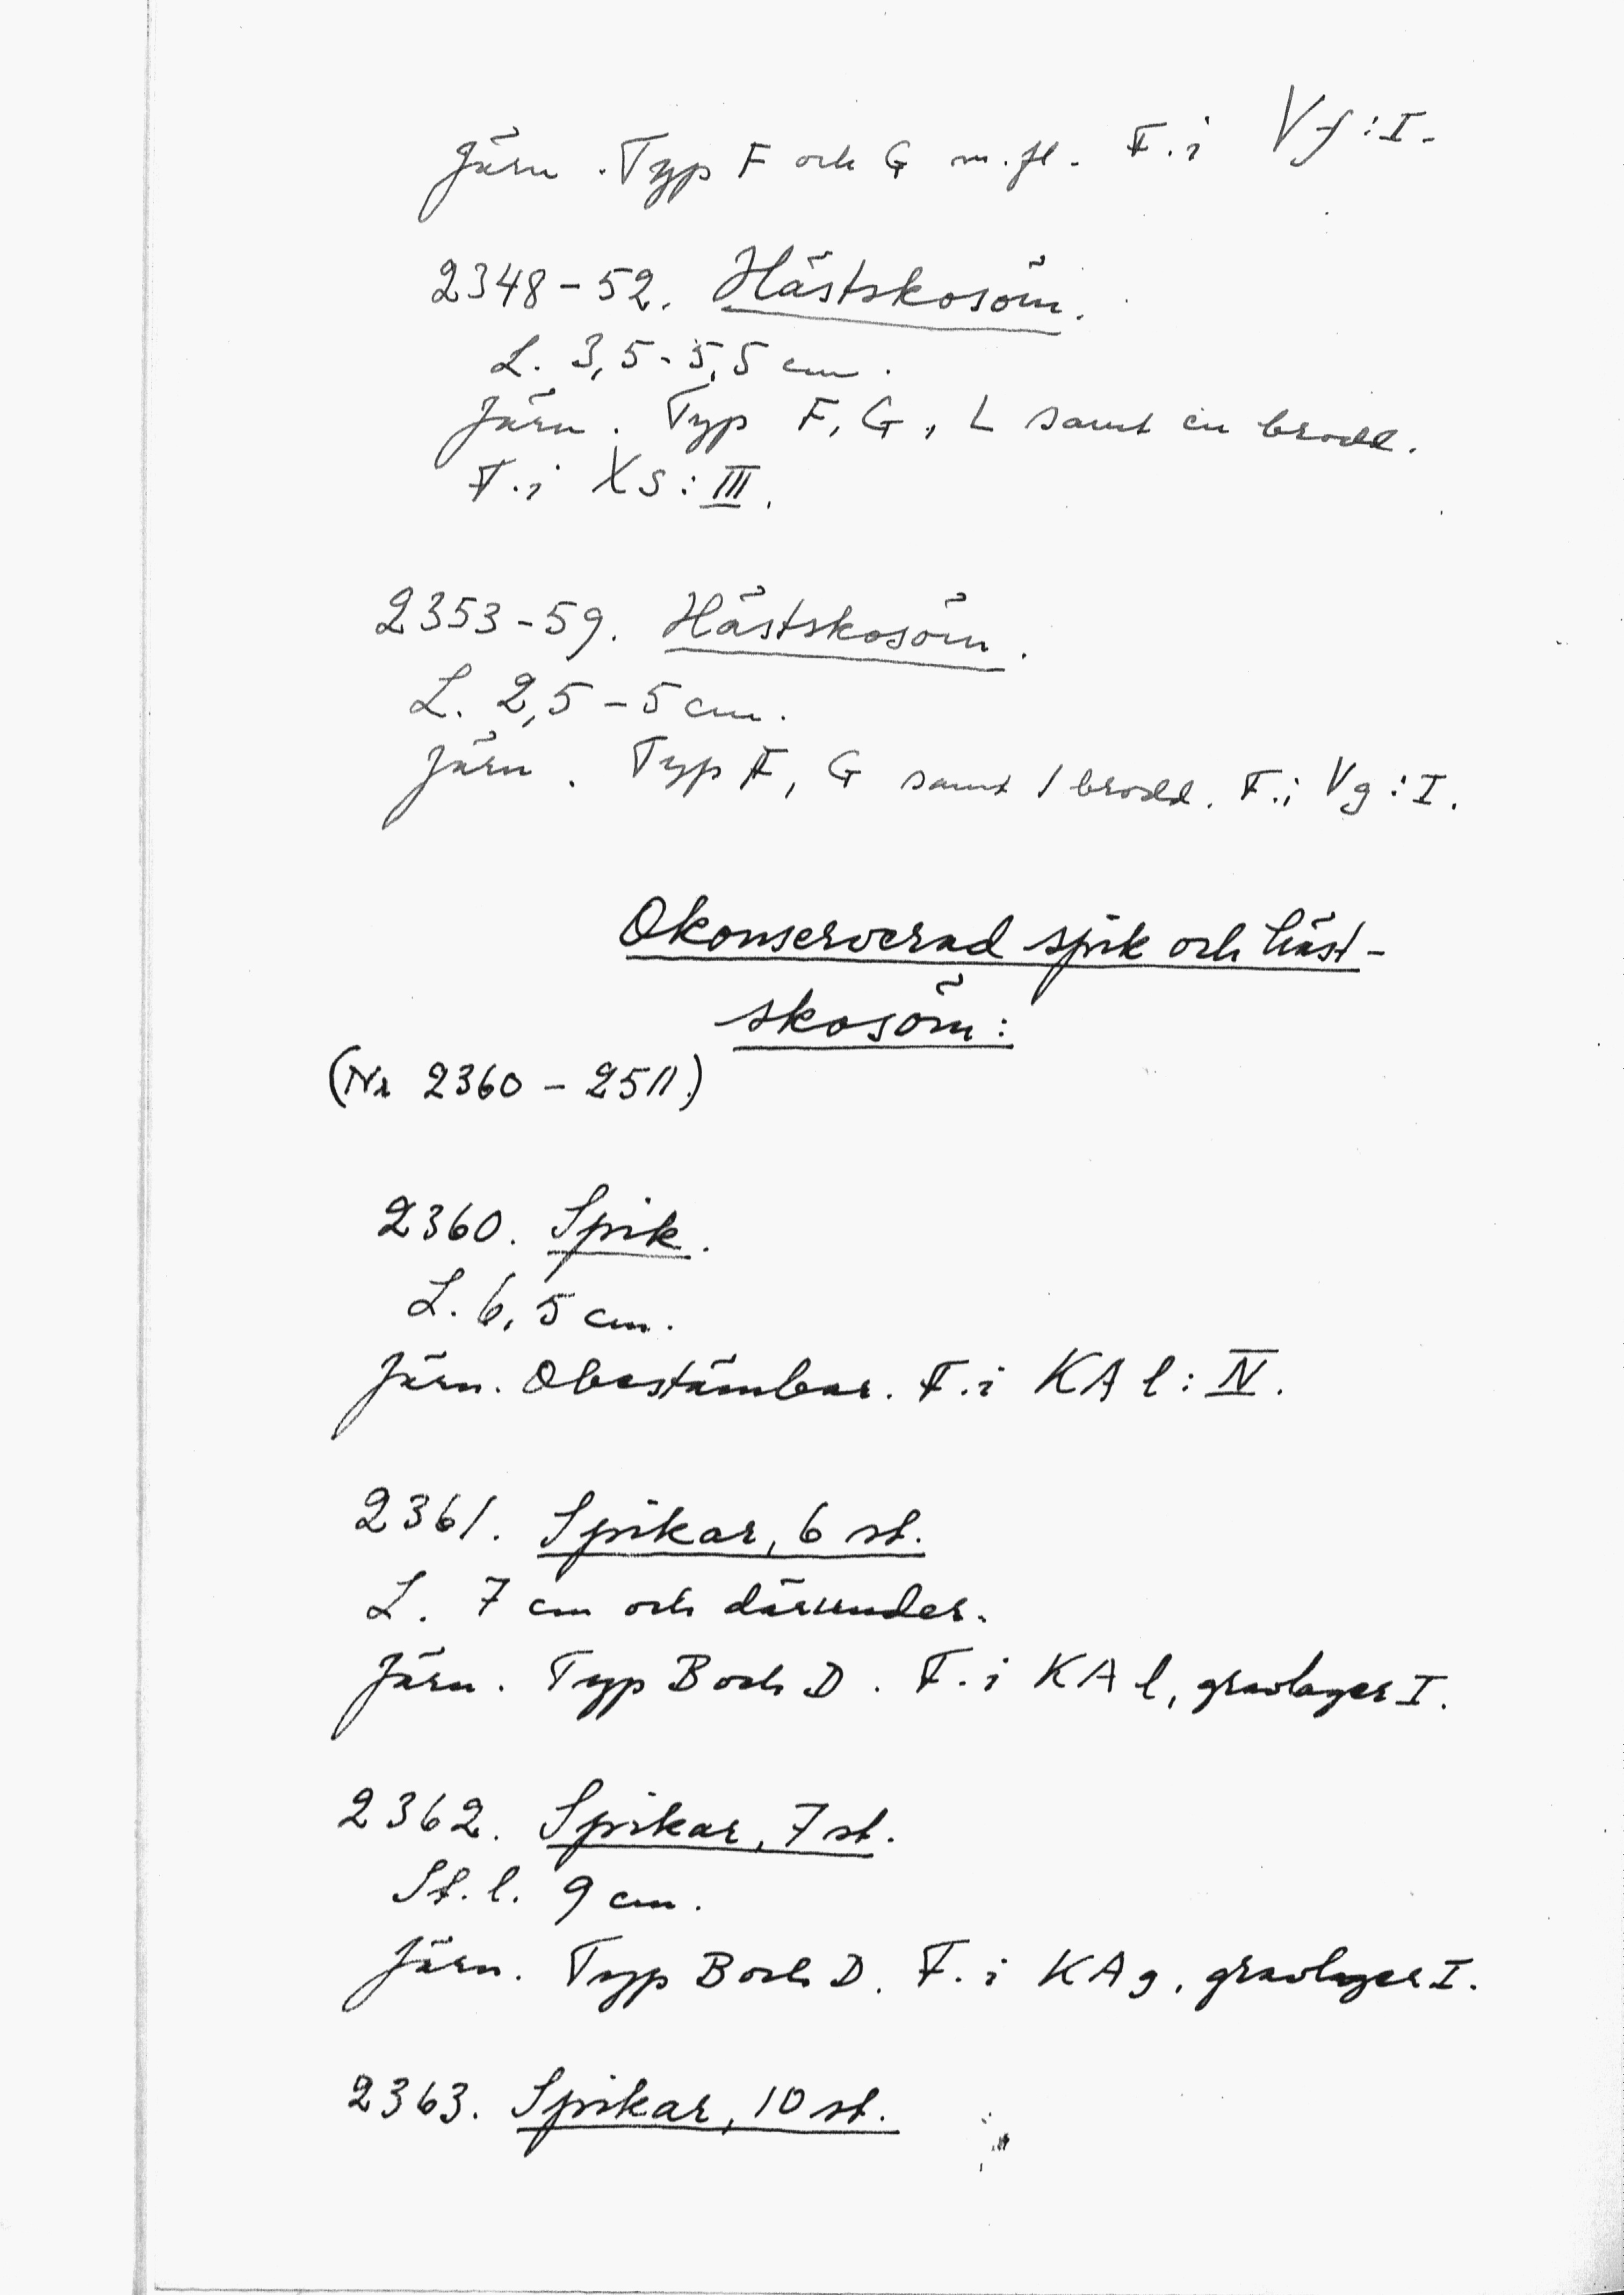 Järn. Typ F och G m.fl. F.i Vf:I.
2348-52. Hästskosöm.
L. 3,5-5,5 cm.
Järn. Typ F, G, L samt en brodd.
F.i Xs:III.
2353-59. Hästskosöm.
L. 2,5-5 cm.
Järn. Typ F, G samt 1 brodd. F.i Vg:I.
Okonserverad spik och häst-
skosöm:
(Nr 2360-2511.)
2360. Spik.
L. 6,5 cm.
Järn. Obestämbar. F.i KA l:IV.
2361. Spikar, 6 st.
L. 7 cm och därunder.
Järn. Typ B och D. F.i KA l, gravlager I.
2362. Spikar, 7 st.
St.l. 9 cm.
Järn. Typ B och D. F.i KA g, gravlager I.
2363. Spikar, 10 st.